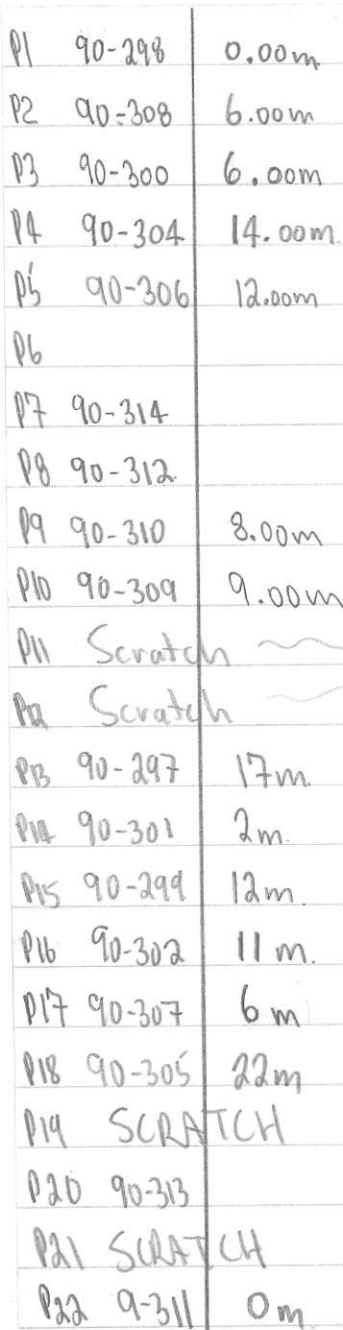 P1 90-298 0.00m
P2 90-308 6.00m
P3 90-300 6.00m
P4 90-304 14.00m.
P5 90-306 12.00m
P6
P7 90-314
P8 90-312
P9 90-310 8.00m
P10 90-309 9.00m
P11 Scratch
P12 Scratch
P13 90-297 17m.
P14 90-301 2m.
P15 90-299 12m.
P16 90-302 11m.
P17 90-307 6m
P18 90-305 22m
P19 SCRATCH
P20 90-313
P21 SCRATCH
P22 9-311 0m